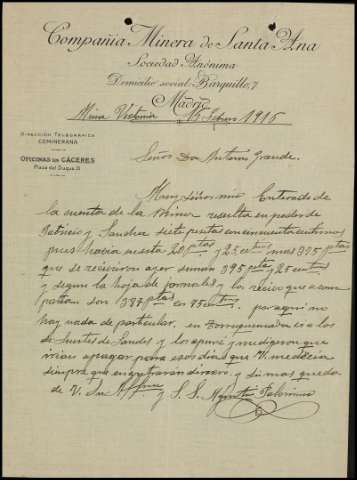 Compañia Minera de Santa Ana
Sociedad Anónima
Domicilio social: Barquillo, 7
Madrid
Mina Victoria 15 Febrero 1915
DIRECCIÓN TELEGRÁFICA
CEMINERANA
OFICINAS EN CÁCERES
Plaza del Duque, 3
Señor Dn Antonio Grande.
Muy Señor mio Enterado de
la cuenta de la Mina resulta en poder de
Patricio y siete pesetas con cincuenta centimos
pues habia resita 20 ptas y 25 cents mas 375 ptas
que se recivieron ayer suman 395 ptas y 25 cents
y segun la hoja de jornales y los recivos que acom
pañan son 387 ptas con 75 cents. por aqui no
hay nada de particular, en
de y los y me digeron que
irian apagar para esos dias que V. me decia
siempre que encontraran dinero y sin mas queda
de V. su Affmo y S. S. Agustin Palomino